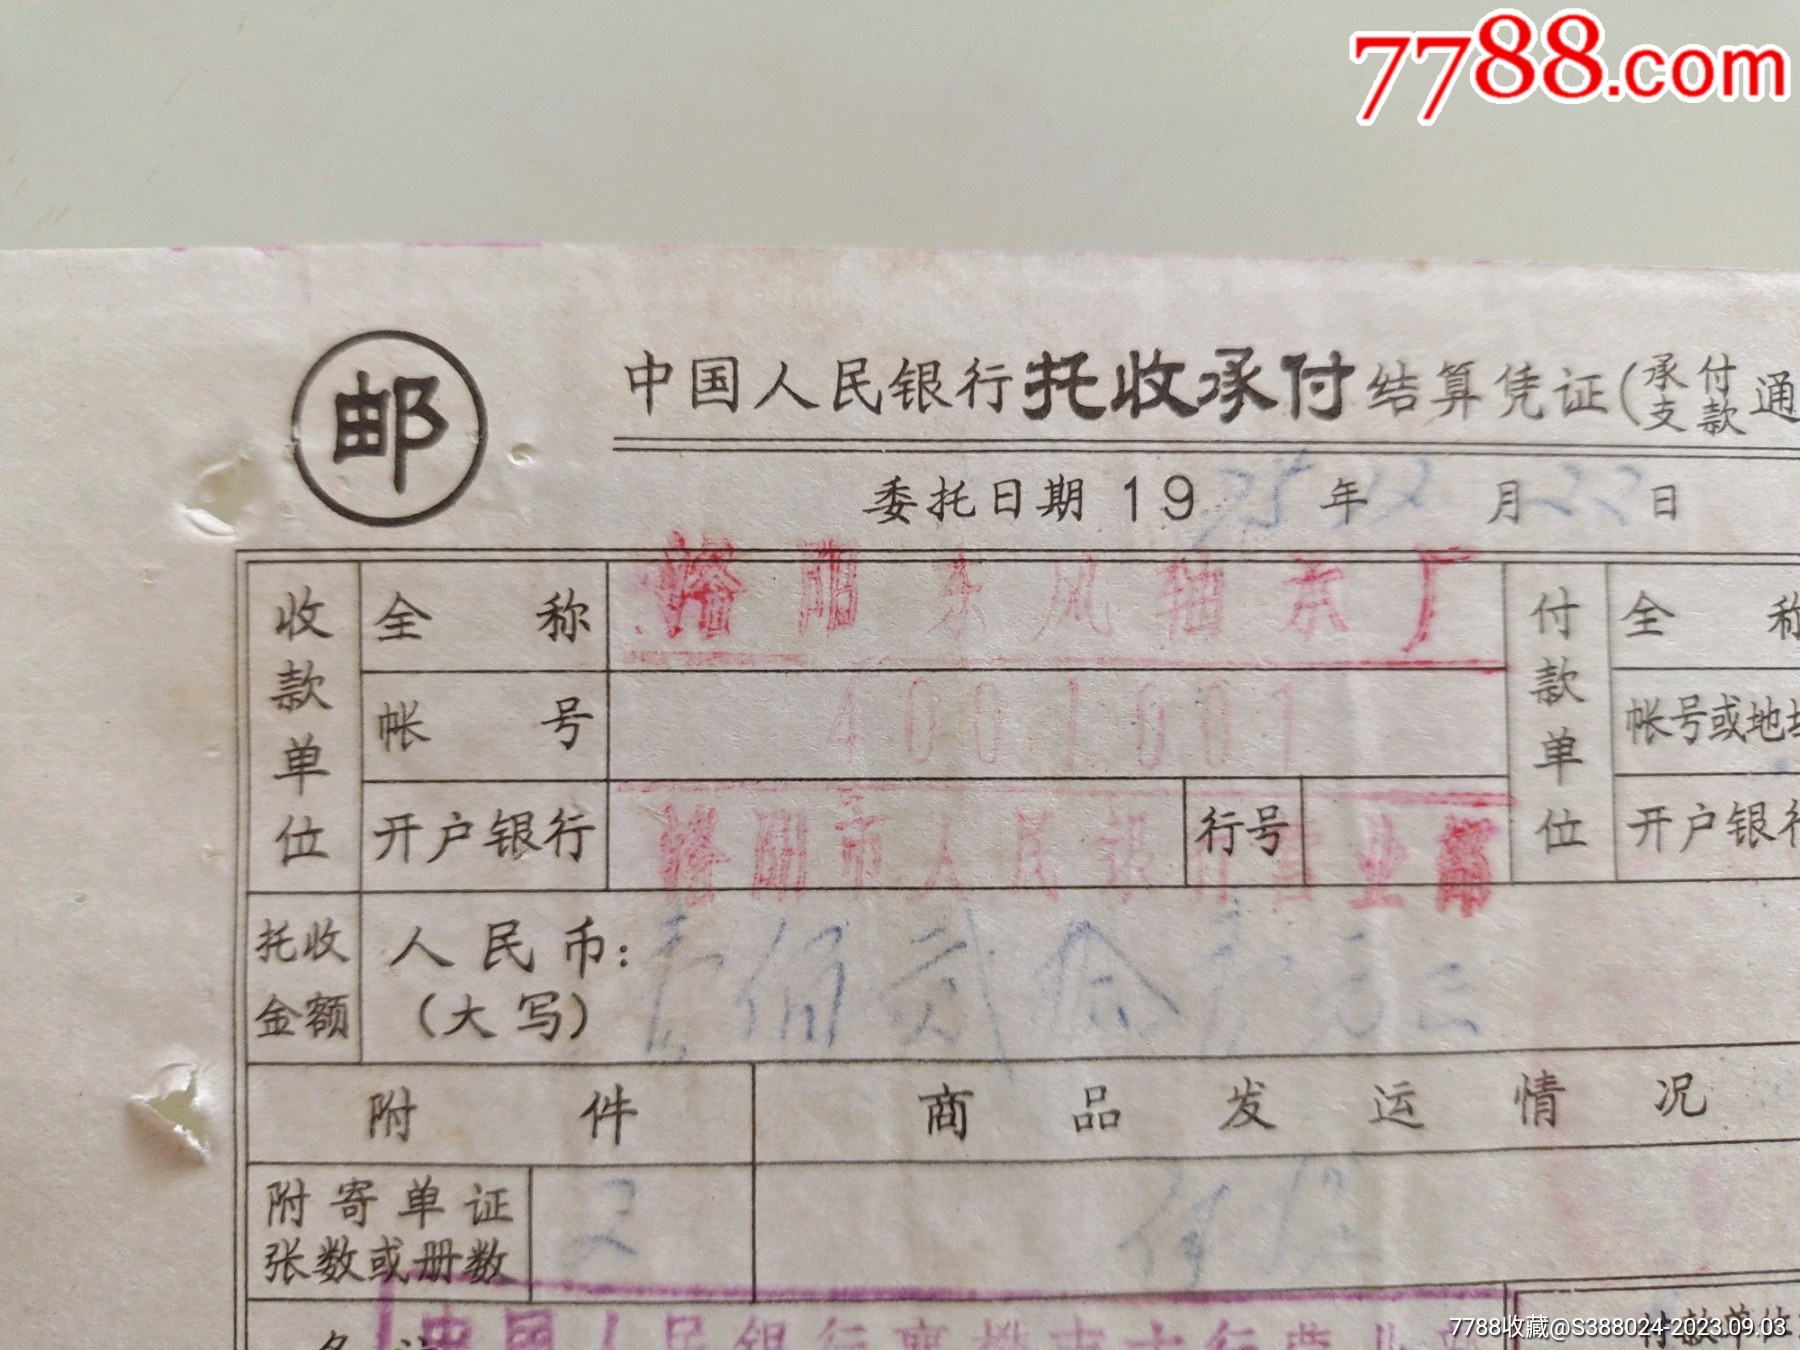 7788.com
邮
中国人民银行托收承付结算凭证(承付支款通
委托日期 19 75 年 12 月 22 日
收款单位
全称 洛阳东风轴承厂
帐号 4001001
开户银行 洛阳市人民银行营业部
行号
付款单位
全称
帐号或地址
开户银行
托收金额
人民币:
(大写)
佰贰拾
附件
商品发运情况
附寄单证
张数或册数
2
中国人民银行襄樊市支行营业部
付款单位
7788收藏@S388024-2023.09.03